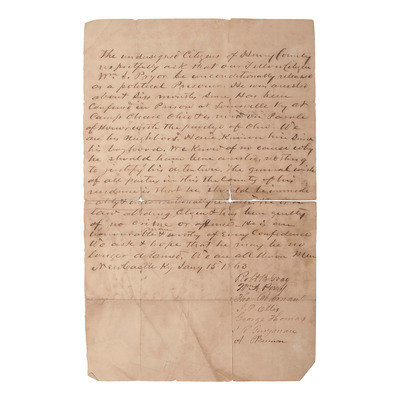 The undersigned Citizens of Henry County
respectfully ask that our Fellow Citizen
Wm S. Pryor be unconditionally released
as a political Prisoner. He was arrested
about Six months since Has been
Confined in Prison at Louisville Ky at
Camp Chase Ohio & is now on Parole
of Honor, with the privilege of Ohio. We
are his Neighbors, Have Known him Since
his boyhood. We Know of no cause why
he should have been arrested, nothing
to justify his detention. The general wish
of all parties in this the County of his
residence is that he should be
& unconditionally released he is a
law abiding Citizen & has been guilty
of no crime or offence. He is an
honorable & worthy of every Confidence
We ask & hope that he may be no
longer detained. We are all Union Men
New Castle Ky Jany 15 1863
Wm
J. P. Ellis
George Thomas